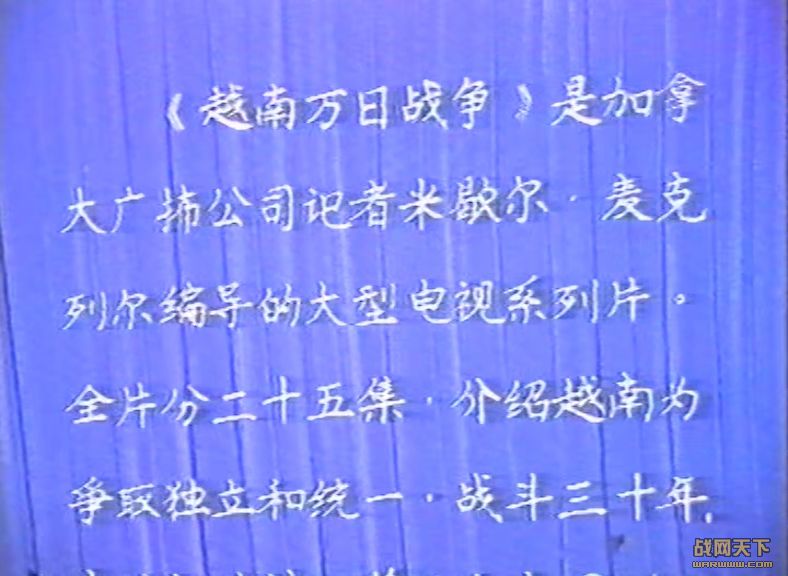 《越南万日战争》是加拿
大广播公司记者米歇尔·麦克
列尔编导的大型电视系列片。
全片分二十五集·介绍越南为
争取独立和统一·战斗三十年,
战网天下
WARWWW.COM